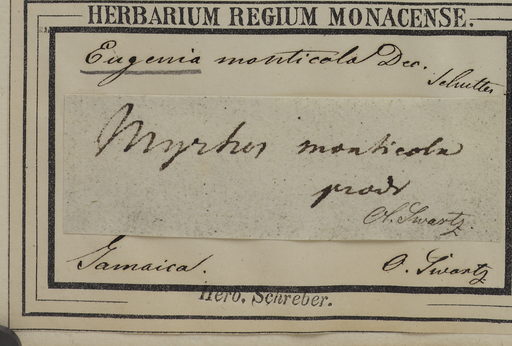 HERBARIUM REGIUM MONACENSE.
Eugenia monticola Dec.
Myrtus monticola
prodr
O. Swartz.
Jamaica. O. Swartz
Herb. Schreber.